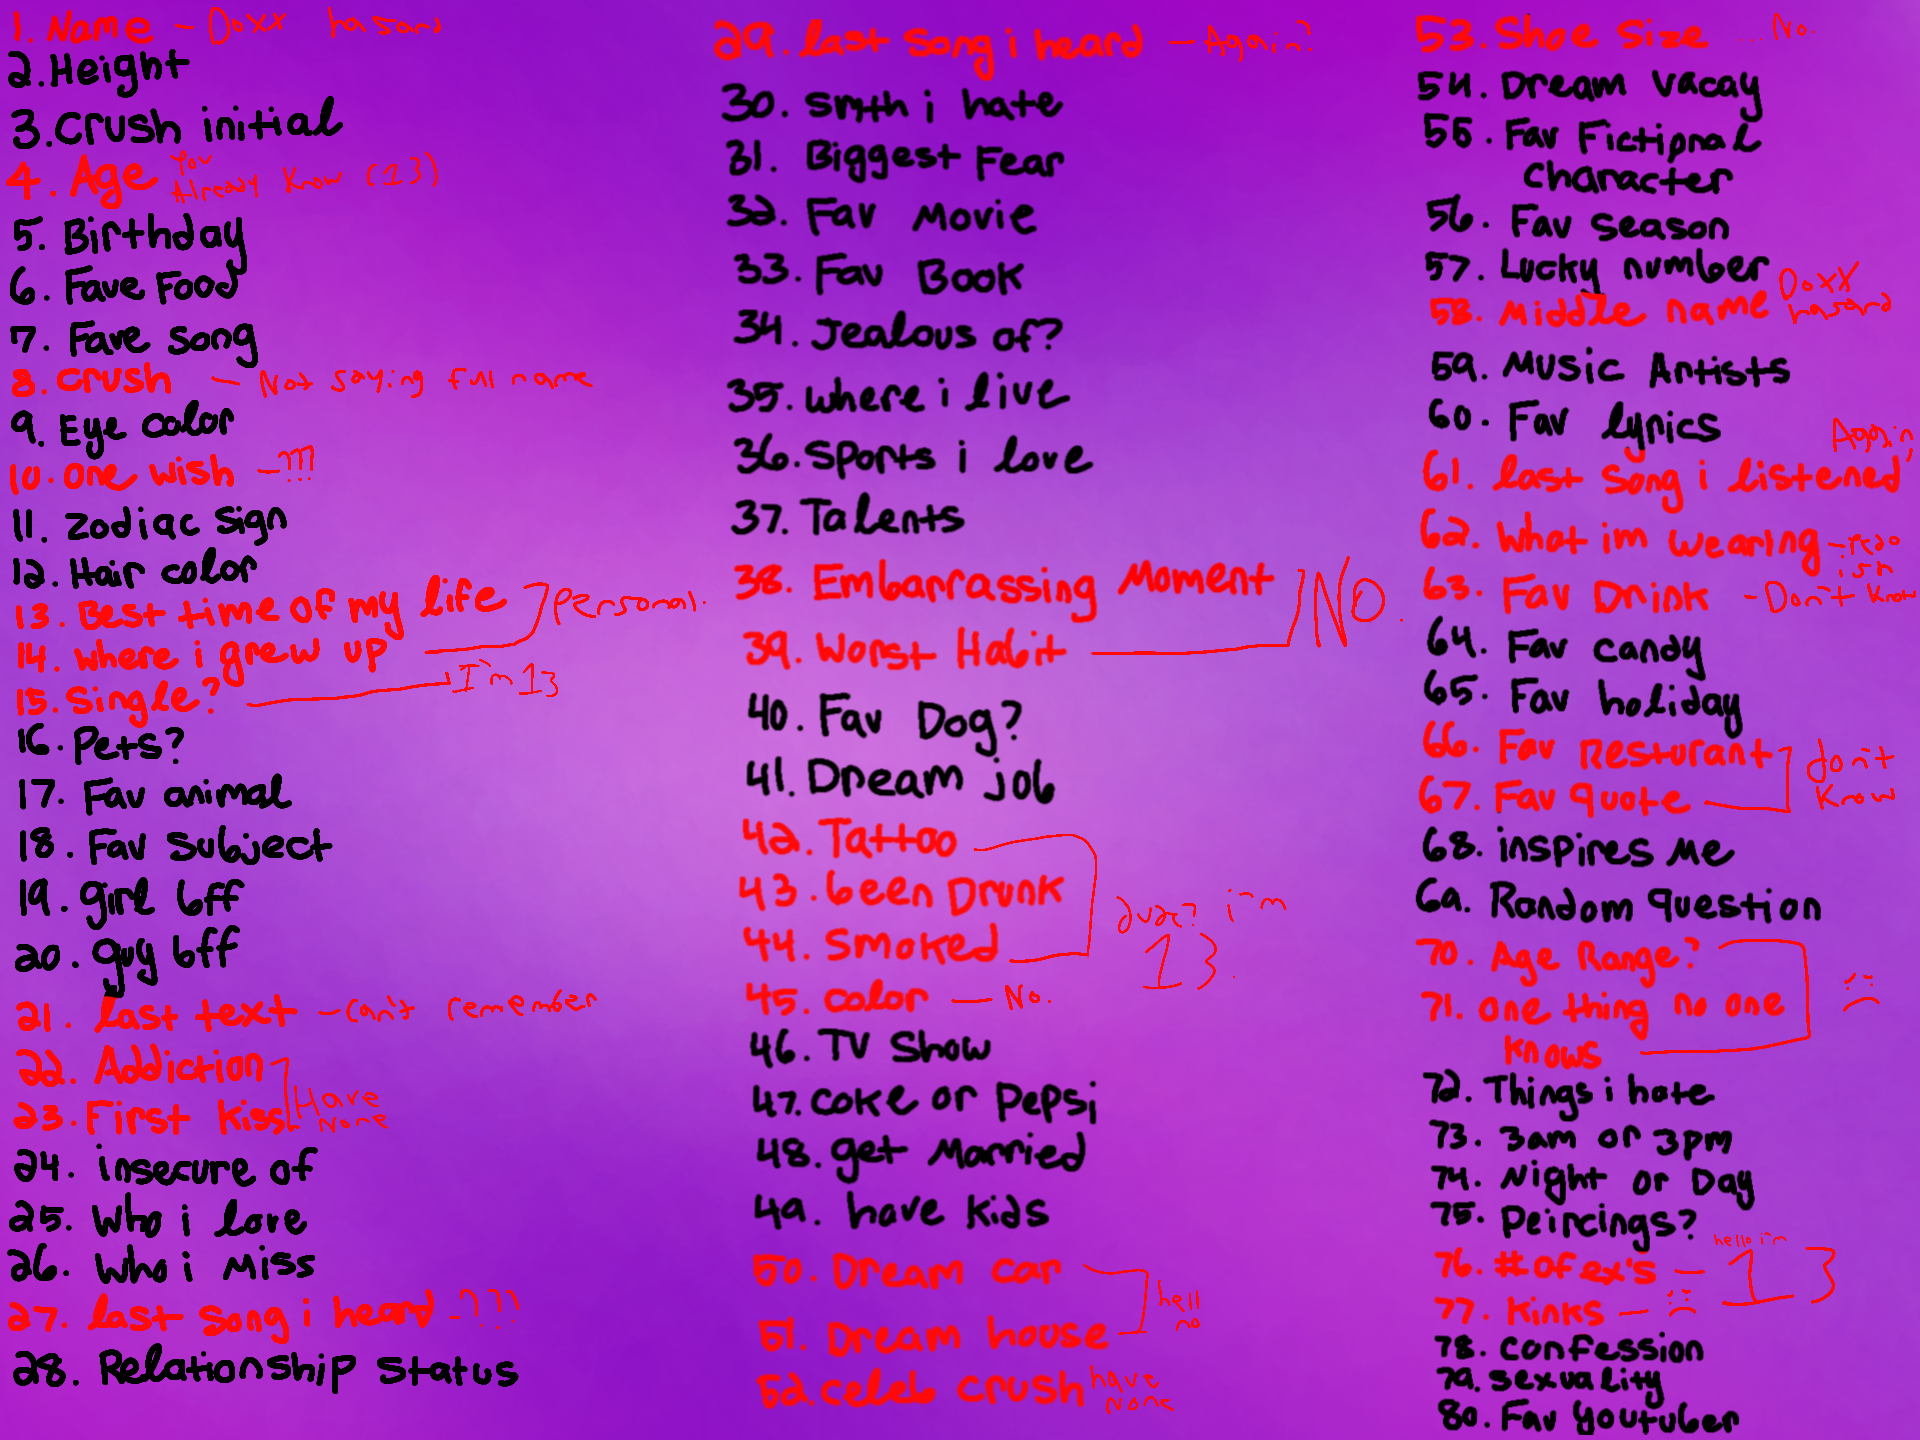 1. Name - Doxx hasard
2. Height
3. Crush initial
4. Age You Already Know (13)
5. Birthday
6. Fave Food
7. Fave song
8. crush - Not saying full name
9. Eye color
10. one wish - ???
11. zodiac sign
12. Hair color
13. Best time of my life
14. where i grew up
] Personal.
15. Single? I'm 13
16. Pets?
17. Fav animal
18. Fav subject
19. girl bff
20. guy bff
21. last text - can't remember
22. Addiction
23. First kiss
Have None
24. insecure of
25. Who i love
26. Who i Miss
27. last song i heard - ???
28. Relationship status
29. last song i heard - Again?
30. smth i hate
31. Biggest Fear
32. Fav Movie
33. Fav Book
34. Jealous of?
35. where i live
36. Sports i love
37. Talents
38. Embarrassing Moment
39. Worst Habit
NO.
40. Fav Dog?
41. Dream job
42. Tattoo
43. been Drunk
44. Smoked
i'm 13.
45. color - No.
46. TV Show
47. coke or Pepsi
48. get Married
49. have kids
50. Dream car
51. Dream house
hell no
52. celeb crush have none
53. Shoe Size ... No.
54. Dream vacay
55. Fav Fictional
character
56. Fav season
57. Lucky number
58. Middle name Doxx hasard
59. Music Artists
60. Fav lyrics
61. last song i listened Again,
62. What im wearing
63. Fav Drink - Don't know
64. Fav candy
65. Fav holiday
66. Fav Resturant
67. Fav quote
don't know
68. inspires Me
69. Random question
70. Age Range?
71. one thing no one
knows
72. Things i hate
73. 3am or 3pm
74. Night or Day
75. Peircings?
76. # of ex's - hello i'm 13
77. Kinks -
78. confession
79. sexuality
80. Fav Youtuber